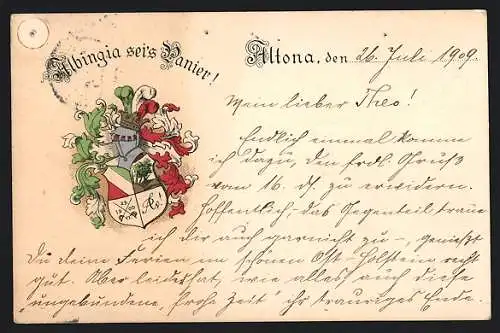 Albingia sei's Panier!
Altona, den 26. Juli 1909.
Mein lieber Theo!
Endlich einmal komme
ich dazu, den frdl. Gruß
vom 16. ds. zu erwidern.
Hoffentlich, das Gegenteil traue
ich dir auch garnicht zu –, genießt
Du deine Ferien im schönen Ost-Holstein recht
gut. Aber leider hat, wie alles auch diese
"ungebundene, frohe Zeit" ihr trauriges Ende.